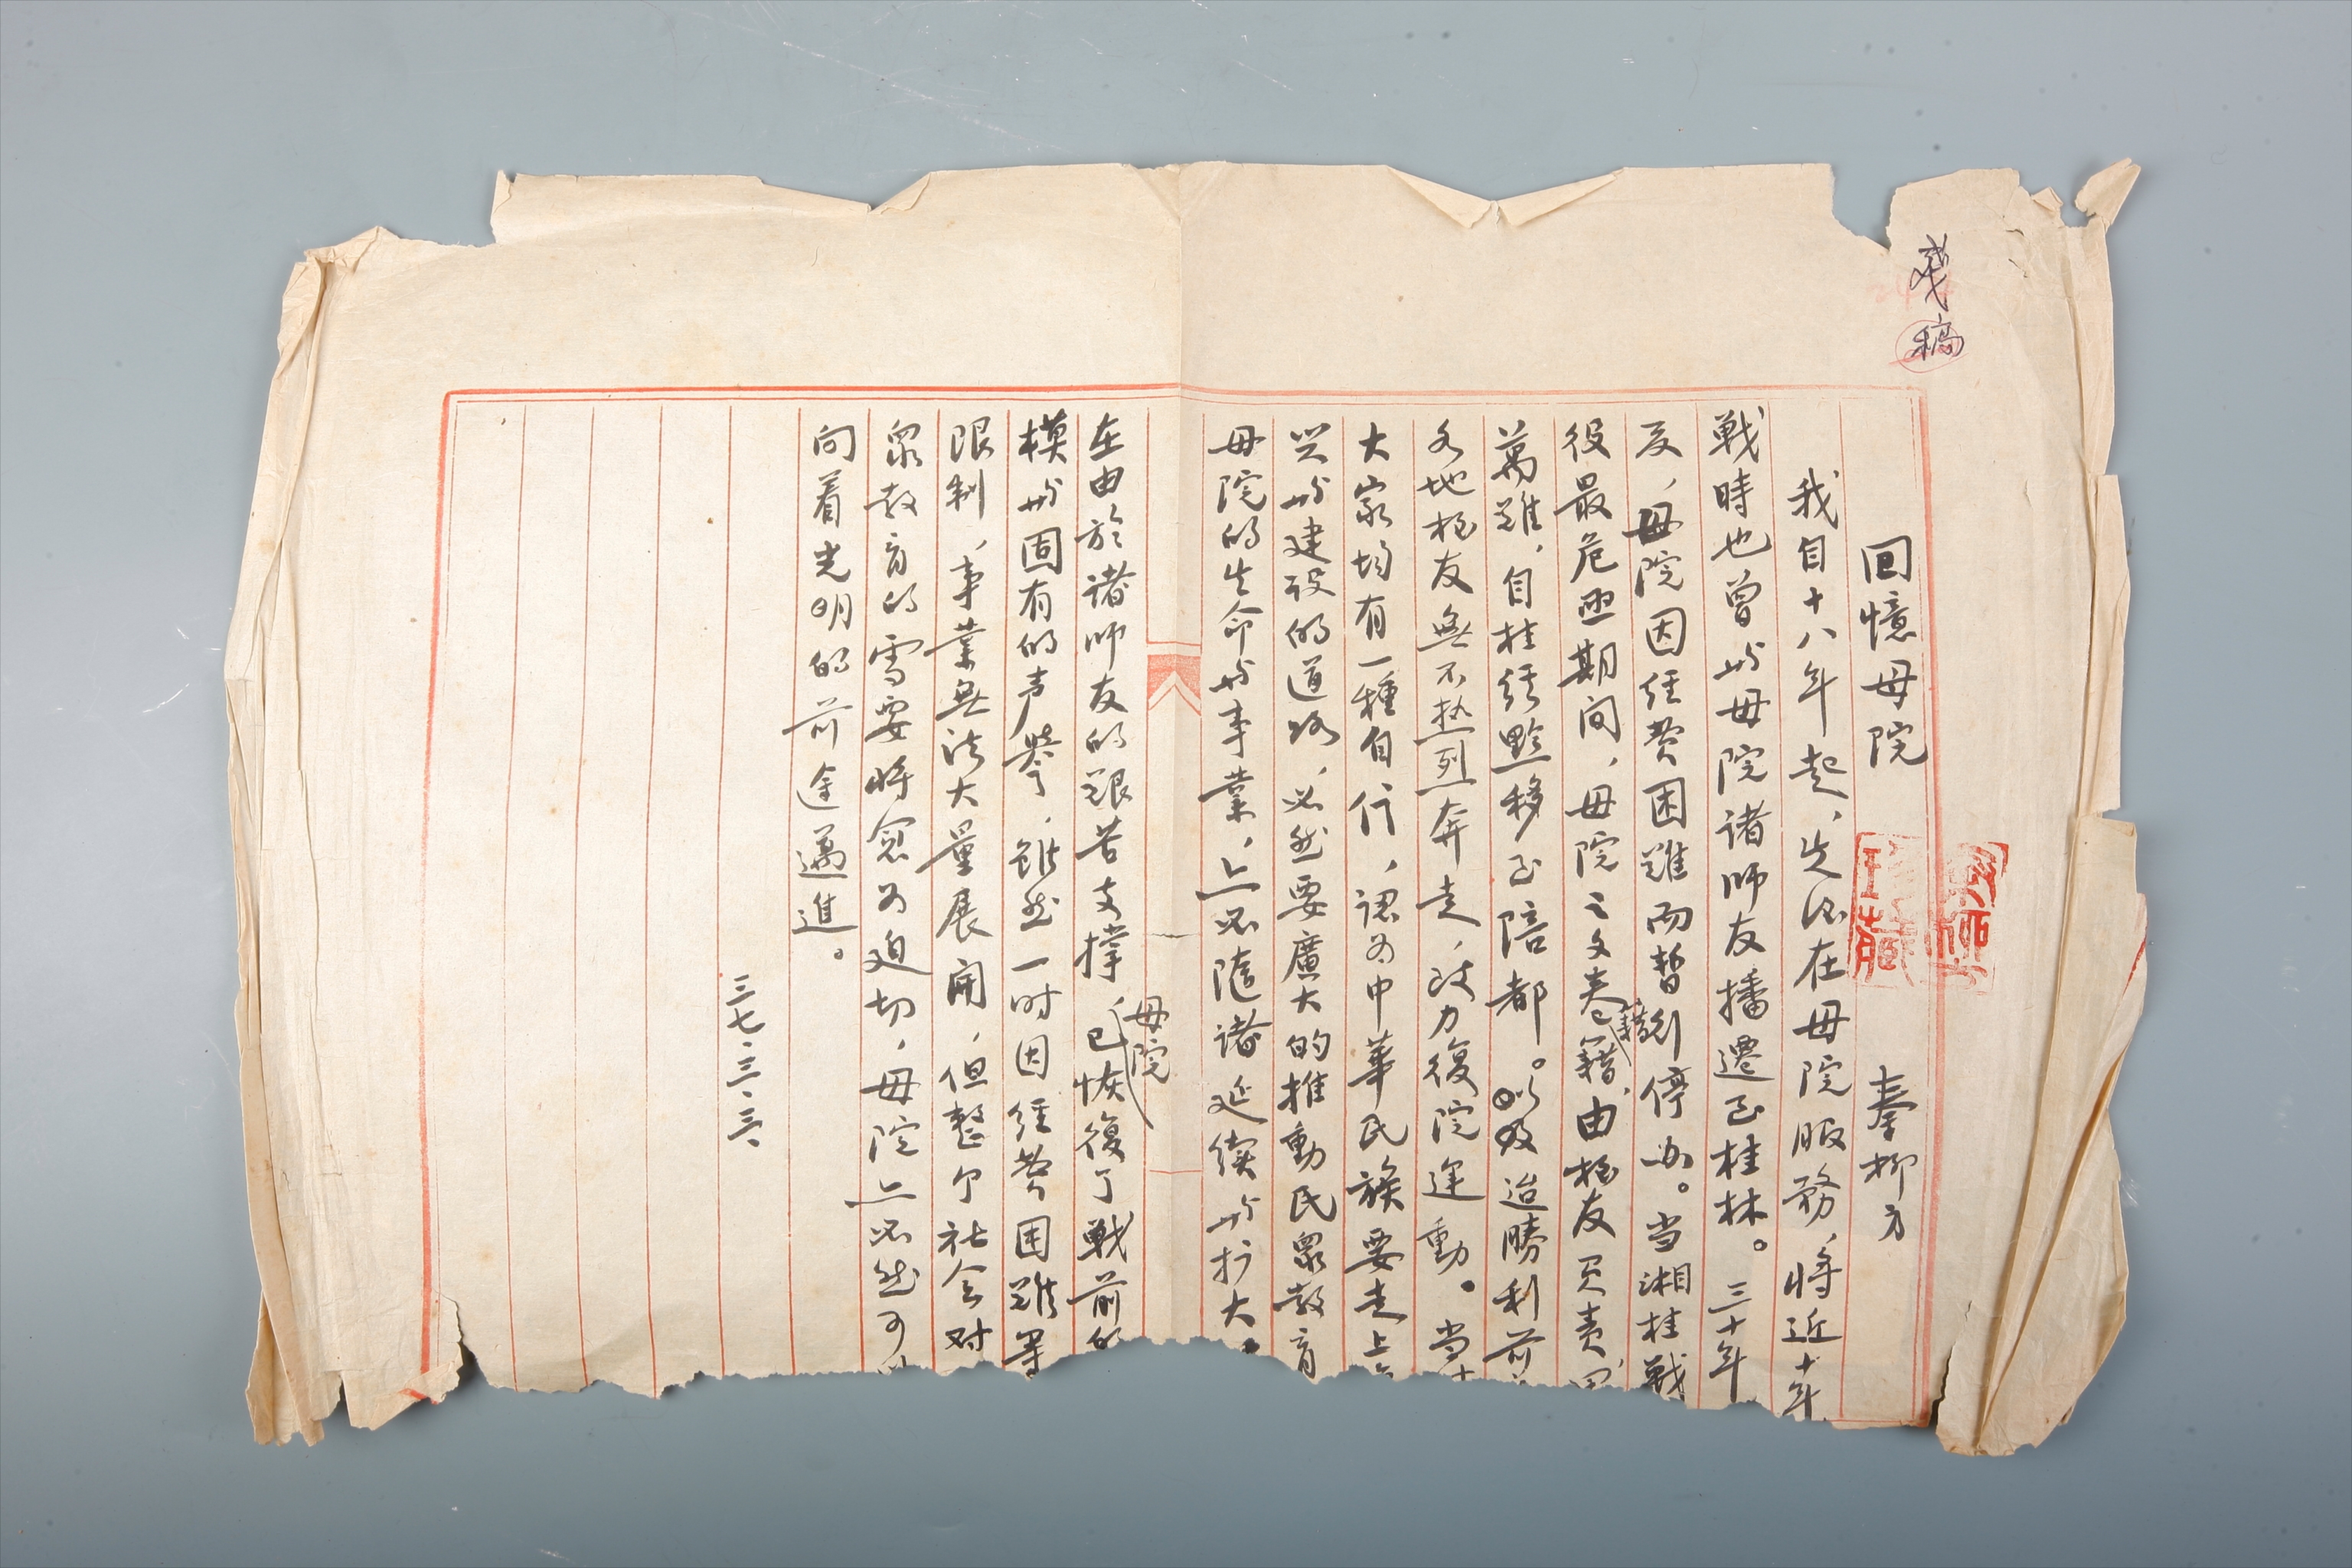 残稿
回憶母院 秦柳方
我自十八年起，先後在母院服務，將近十年
戰時也曾與母院諸師友播遷至桂林。三十年
夏，母院因经费困難而暫停办。当湘桂戰
役最危亟期间，母院之文卷籍，由校友负责
萬難，自桂经黔移至陪都。以及迨勝利前
各地校友無不热烈奔走，致力復院運動。当
大家均有一種自信，認为中華民族要走上
與建设的道路，必然要廣大的推動民眾教育
母院的生命與事業，亦必随诸延续與扩大。
在由於诸师友的艰苦支撑，母院已恢復了戰前的
模與固有的声譽，虽然一时因经费困难等
限制，事業無法大量展開，但整个社会对
眾教育的需要將愈为迫切，母院亦必然可
向着光明的前途邁進。
三七·三·三